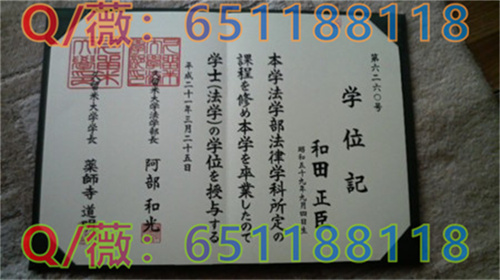 Q/薇：651188118
第六二六〇号
学位記
和田正臣
昭和五十九年九月四日生
本学法学部法律学科所定の
課程を修め本学を卒業したので
学士（法学）の学位を授与する
平成二十一年三月二十五日
久留米大学法学部長 阿部和光
久留米大学学長 薬師寺道
Q/薇：651188118